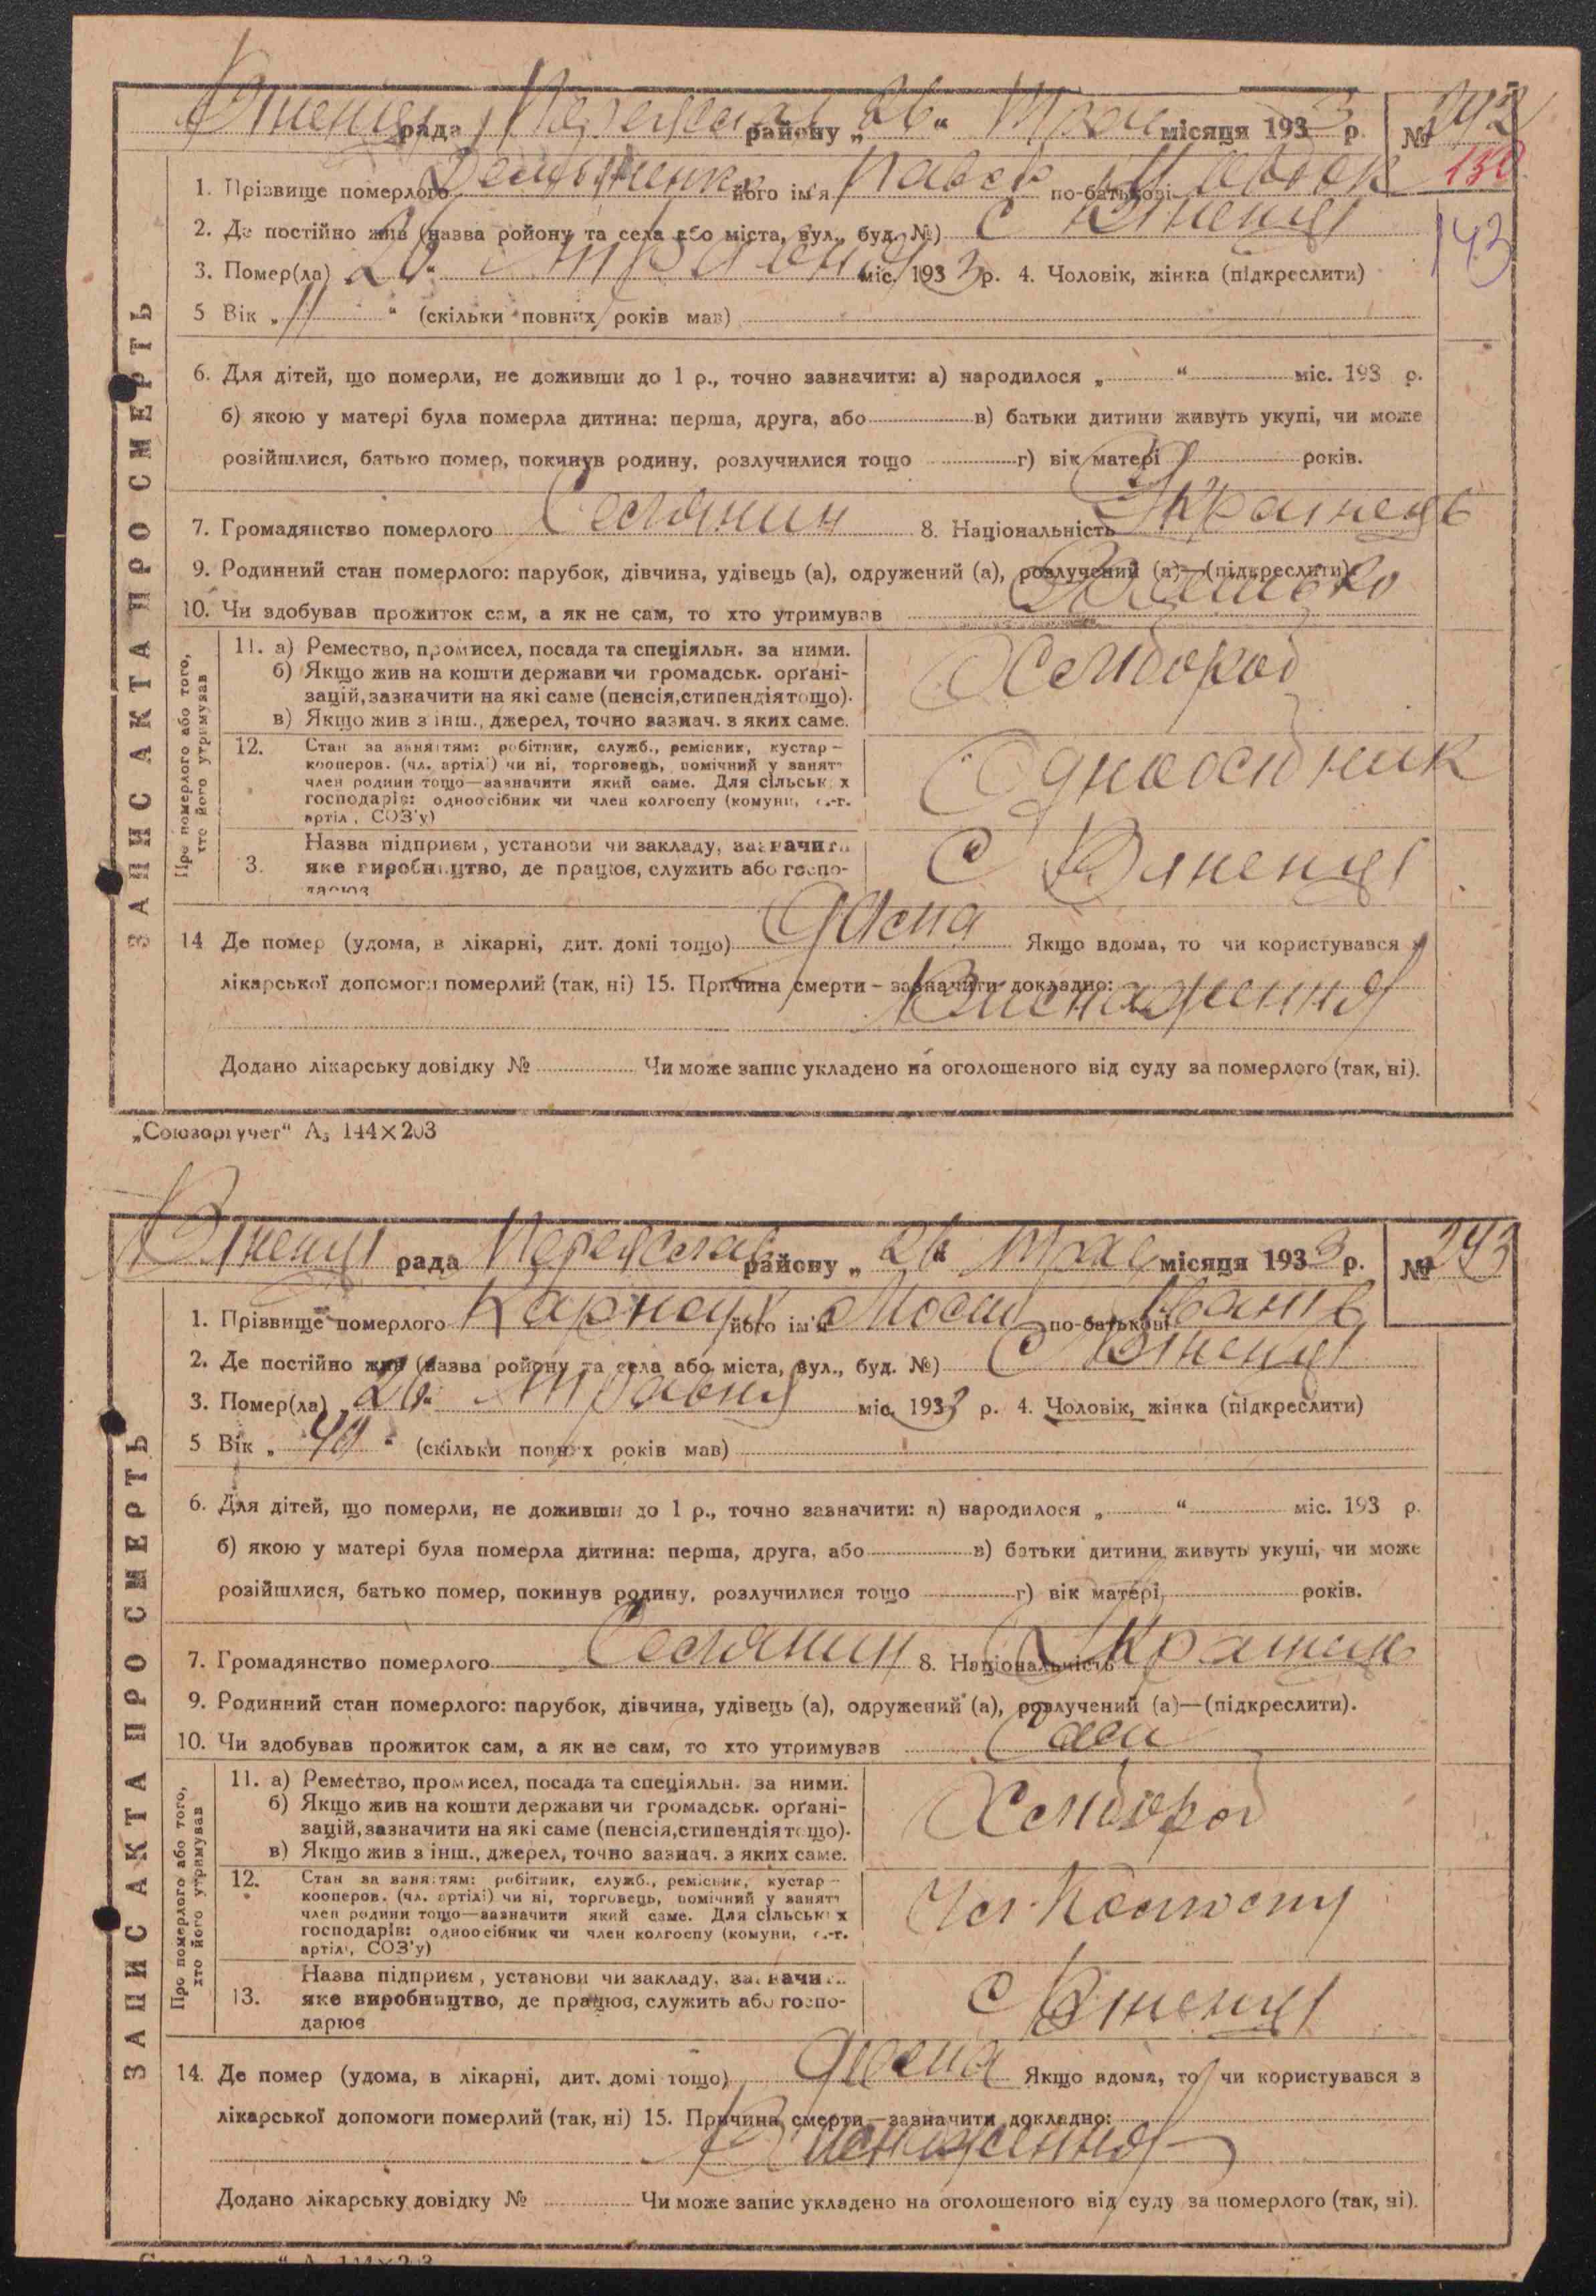 В'юненці рада Переяслав району „26“ Трав місяця 1933 р. № 242
130
1. Прізвище померлого його ім'я Павло по-батькові
143
2. Де постійно жив (назва ройону та села або міста, вул., буд. №) С В'юненці
3. Помер(ла) 26 Травня міс. 1933 р. 4. Чоловік, жінка (підкреслити)
5 Вік „ 11 “ (скільки повних років мав)
6. Для дітей, що померли, не доживши до 1 р., точно зазначити: а) народилося „ “ міс. 193 р.
б) якою у матері була померла дитина: перша, друга, або в) батьки дитини живуть укупі, чи може
розійшлися, батько помер, покинув родину, розлучилися тощо г) вік матері років.
7. Громадянство померлого Селянин 8. Національність Українець
9. Родинний стан померлого: парубок, дівчина, удівець (а), одружений (а), розлучений (а)—(підкреслити).
10. Чи здобував прожиток сам, а як не сам, то хто утримував Батько
ЗАПИС АКТА ПРО СМЕРТЬ
Про померлого або того, хто його утримував
11. а) Ремество, промисел, посада та спеціяльн. за ними.
б) Якщо жив на кошти держави чи громадськ. орґані-
зацій, зазначити на які саме (пенсія, стипендія тощо).
в) Якщо жив з інш., джерел, точно зазнач. з яких саме.
Хлібороб
12. Стан за заняттям: робітник, служб., ремісник, кустар—
кооперов. (чл. артілі) чи ні, торговець, помічний у занятт
член родини тощо—зазначити який саме. Для сільських
господарів: одноосібник чи член колгоспу (комуни, с.-г.
артіл, СОЗ'у)
Одноосібник
3. Назва підприєм, установи чи закладу, зазначити
яке виробництво, де працює, служить або госпо-
дарює
С В'юненці
14 Де помер (удома, в лікарні, дит. домі тощо) Дома Якщо вдома, то чи користувався з
лікарської допомоги померлий (так, ні) 15. Причина смерти—зазначити докладно:
Виснаження
Додано лікарську довідку № Чи може запис укладено на оголошеного від суду за померлого (так, ні).
„Союзоргучет“ А₅ 144×203
В'юненці рада Переяслав району „26“ Трав місяця 1933 р. № 243
1. Прізвище померлого Карнаух його ім'я Мосій по-батькові Іванів
2. Де постійно жив (назва ройону та села або міста, вул., буд. №) С В'юненці
3. Помер(ла) 26 Травня міс. 1933 р. 4. Чоловік, жінка (підкреслити)
5 Вік „ 40 “ (скільки повних років мав)
6. Для дітей, що померли, не доживши до 1 р., точно зазначити: а) народилося „ “ міс. 193 р.
б) якою у матері була померла дитина: перша, друга, або в) батьки дитини живуть укупі, чи може
розійшлися, батько помер, покинув родину, розлучилися тощо г) вік матері років.
7. Громадянство померлого Селянин 8. Національність Українець
9. Родинний стан померлого: парубок, дівчина, удівець (а), одружений (а), розлучений (а)—(підкреслити).
10. Чи здобував прожиток сам, а як не сам, то хто утримував Сам
ЗАПИС АКТА ПРО СМЕРТЬ
Про померлого або того, хто його утримував
11. а) Ремество, промисел, посада та спеціяльн. за ними.
б) Якщо жив на кошти держави чи громадськ. орґані-
зацій, зазначити на які саме (пенсія, стипендія тощо).
в) Якщо жив з інш., джерел, точно зазнач. з яких саме.
Хлібороб
12. Стан за заняттям: робітник, служб., ремісник, кустар—
кооперов. (чл. артілі) чи ні, торговець, помічний у занятт
член родини тощо—зазначити який саме. Для сільських
господарів: одноосібник чи член колгоспу (комуни, с.-г.
артіл, СОЗ'у)
Чл. Колгоспу
13. Назва підприєм, установи чи закладу, зазначити
яке виробництво, де працює, служить або госпо-
дарює
С В'юненці
14. Де помер (удома, в лікарні, дит. домі тощо) Дома Якщо вдома, то чи користувався з
лікарської допомоги померлий (так, ні) 15. Причина смерти—зазначити докладно:
Виснаження
Додано лікарську довідку № Чи може запис укладено на оголошеного від суду за померлого (так, ні).